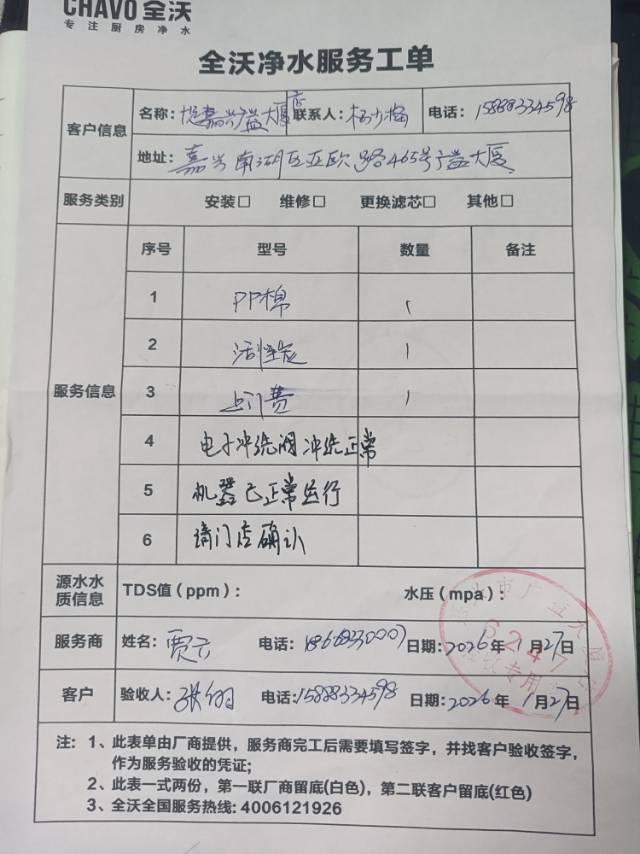 CHAVO全沃
专注厨房净水
全沃净水服务工单
客户信息
名称: 嘉兴广益大厦店 联系人: 杨少梅 电话: 15888334598
地址: 嘉兴南湖区亚欧路465号广益大厦
服务类别 安装□ 维修□ 更换滤芯□ 其他□
服务信息
序号 型号 数量 备注
1 PP棉 1
2 活性炭 1
3 上门费 1
4 电子冲洗阀冲洗正常
5 机器已正常运行
6 请门店确认
源水水质信息 TDS值（ppm）: 水压（mpa）:
服务商 姓名: 贾云 电话: 日期: 2026年1月27日
客户 验收人: 张翎 电话: 15888334598 日期: 2026年1月27日
注: 1、此表单由厂商提供，服务商完工后需要填写签字，并找客户验收签字，
作为服务验收的凭证;
2、此表一式两份，第一联厂商留底(白色)，第二联客户留底(红色)
3、全沃全国服务热线: 4006121926